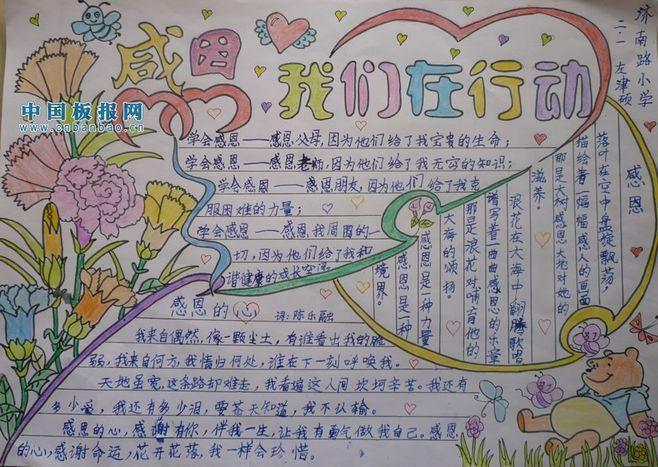 感恩
我们在行动
济南路小学
二·1 左津硕
中国板报网
www.cnbanbao.cn
学会感恩——感恩父母,因为他们给了我宝贵的生命;
学会感恩——感恩老师,因为他们给了我无穷的知识;
学会感恩——感恩朋友,因为他们给了我克
服困难的力量;
学会感恩——感恩我周围的一
切,因为他们给了我和
谐健康的成长空间
感恩
落叶在空中盘旋飘荡,
描绘着一幅幅感人的画面
那是大树感恩大地对她的
滋养。
浪花在大海中翻腾歌唱
谱写着一曲曲感恩的乐章
那是浪花对哺育他的
大海的颂扬。
感恩是一种力量
感恩是一种
境界。
感恩的心
词:陈乐融
我来自偶然,像一颗尘土,有谁看出我的脆
弱,我来自何方,我情归何处,谁在下一刻呼唤我。
天地虽宽,这条路却难走,我看遍这人间坎坷辛苦。我还有
多少爱,我还有多少泪,要苍天知道,我不认输。
感恩的心,感谢有你,伴我一生,让我有勇气做我自己。感恩
的心,感谢命运,花开花落,我一样会珍惜。